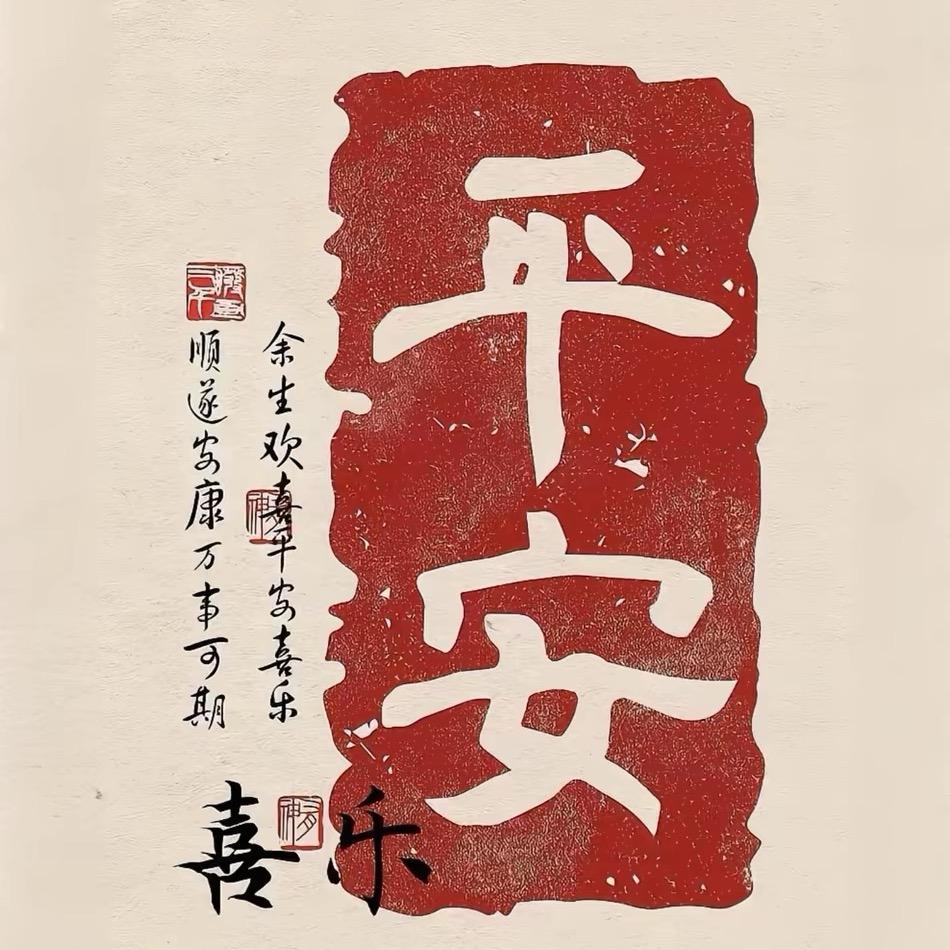 平安
余生欢喜平安喜乐
顺遂安康万事可期
喜乐